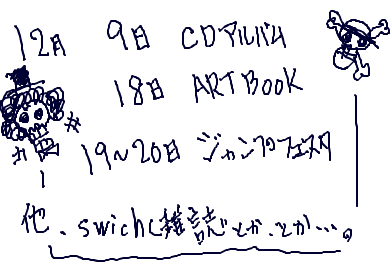 12月 9日 CDアルバム
18日 ART BOOK
19~20日 ジャンプフェスタ
他、swich(雑誌)とか、とか…。